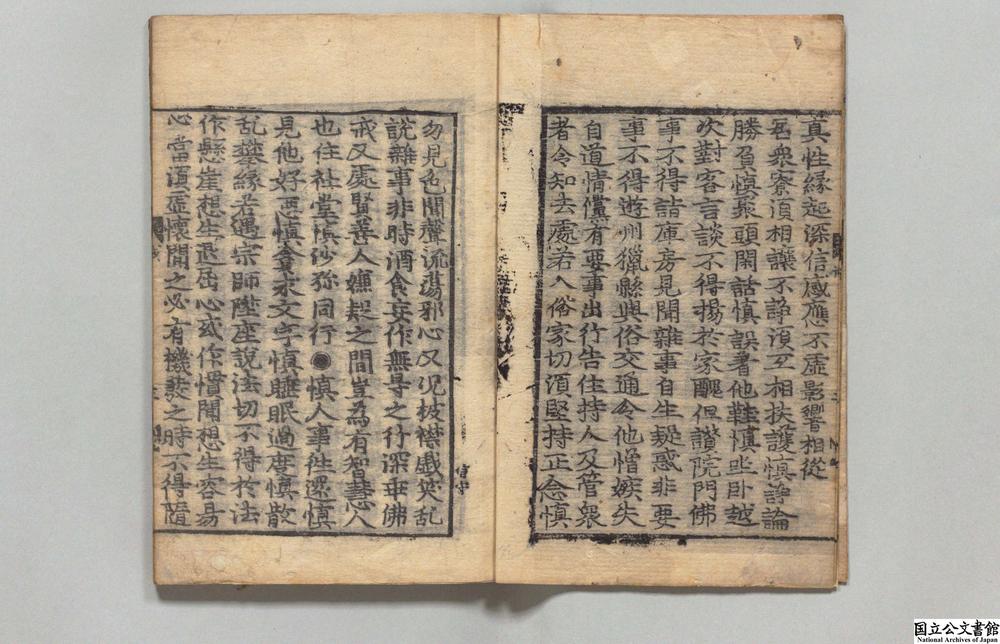 真性縁起深信感應不虛影響相從
居衆寮湏相讓不諍湏互相扶護慎諍論
勝負慎聚頭閑話慎誤著他鞋慎坐卧越
次對客言談不得揚於家醜但讃院門佛
事不得詣庫房見聞雜事自生疑惑非要
事不得遊州獵縣與俗交通令他憎嫉失
自道情儻有要事出行告住持人及管衆
者令知去處若入俗家切湏堅持正念慎
勿見色聞聲流蕩邪心又况披襟戱笑乱
說雜事非時酒食妄作無㝵之行深乖佛
戒又處賢善人嫌疑之間豈為有智慧人
也住社堂慎沙弥同行●慎人事徃還慎
見他好惡慎貪求文字慎睡眠過度慎散
乱攀緣若遇宗師陞座說法切不得於法
作懸崖想生退屈心或作慣聞想生容易
心當湏虛懷聞之必有機發之時不得隨
国立公文書館
National Archives of Japan